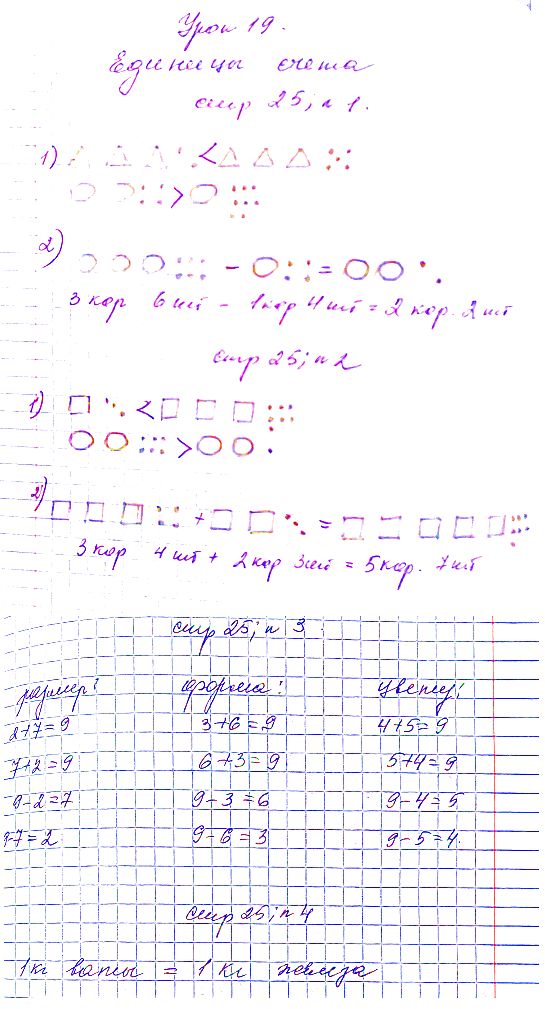 Урок 19.
Единицы счета
стр 25; п 1.
1) <
>
2) - =
3 кор 6 шт - 1кор 4 шт = 2 кор. 2 шт
стр 25; п 2
1) <
>
2) + =
3 кор 4 шт + 2 кор 3шт = 5 кор. 7 шт
стр 25; п 3
размер: форма: цвету:
2+7=9 3+6=9 4+5=9
7+2=9 6+3=9 5+4=9
9-2=7 9-3=6 9-4=5
9-7=2 9-6=3 9-5=4.
стр 25; п 4
1кг ваты = 1 кг железа